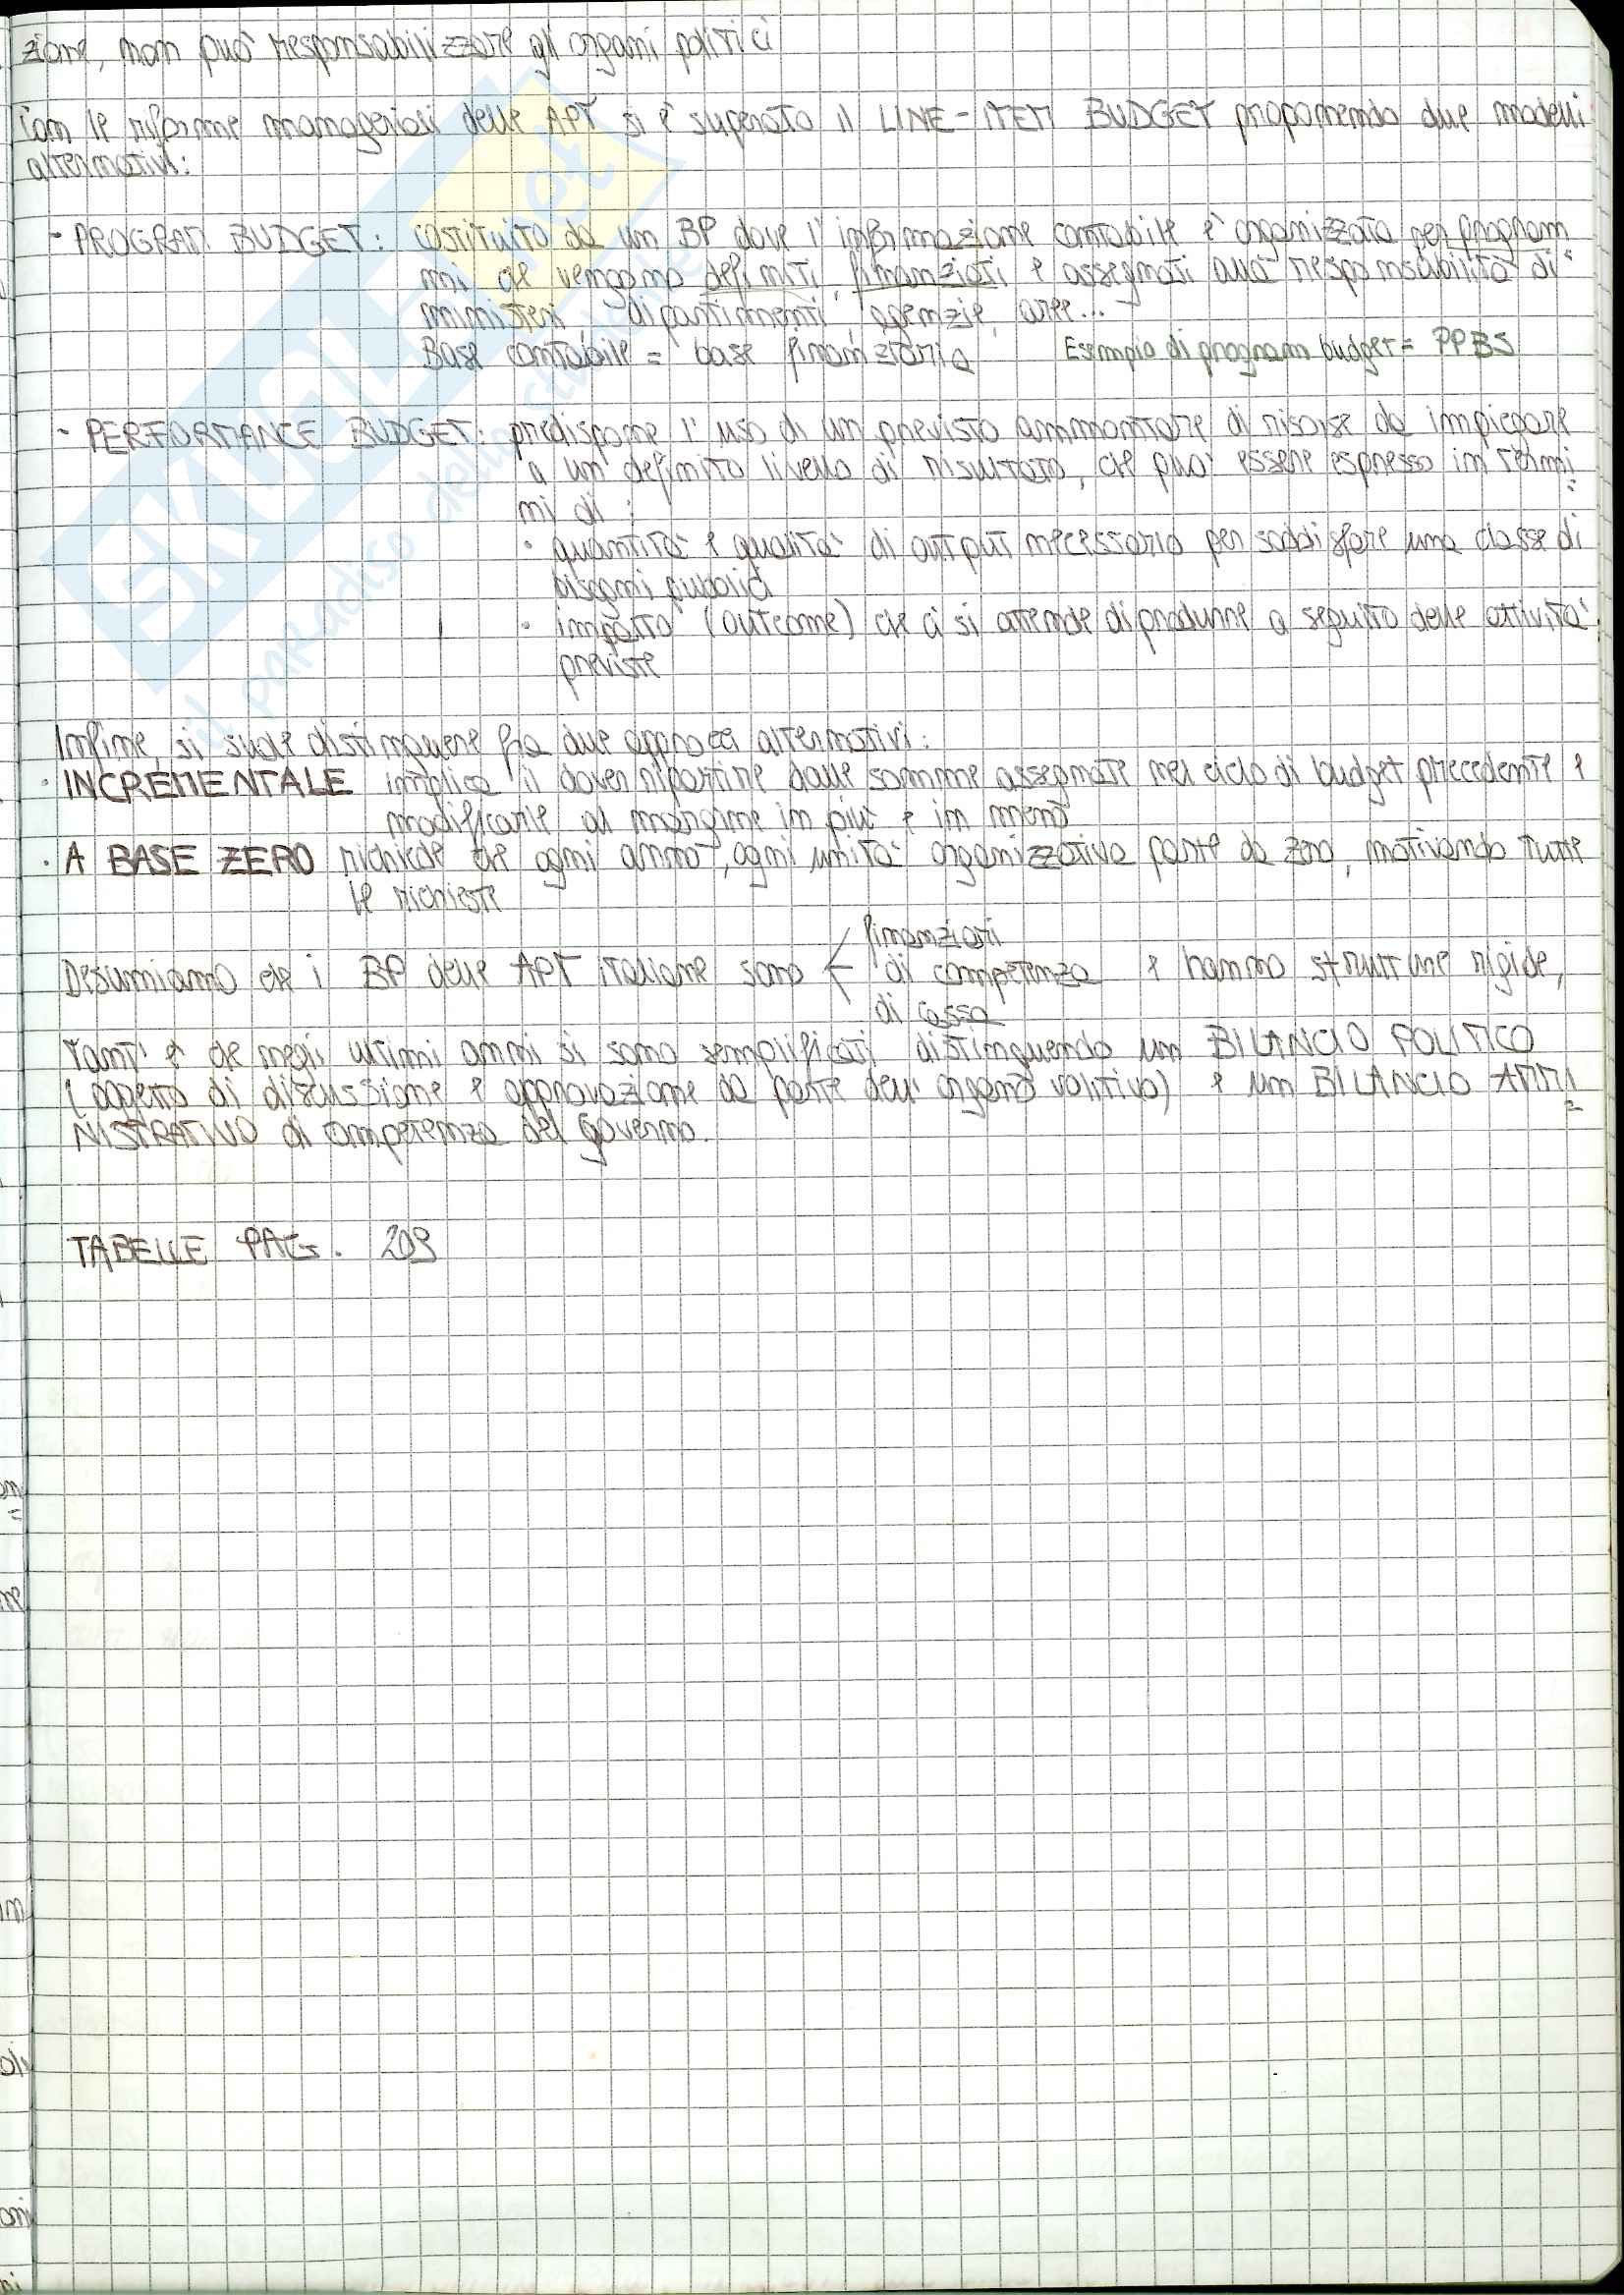 zione, non può responsabilizzare gli organi politici
Con le riforme manageriali delle APT si è superato il LINE-ITEM BUDGET proponendo due modelli
alternativi:
- PROGRAM BUDGET: costituito da un BP dove l'informazione contabile è organizzata per program
mi che vengono definiti, finanziati e assegnati alla responsabilità di
ministeri, dipartimenti, agenzie, aree...
Base contabile = base finanziaria Esempio di program budget = PPBS
- PERFORMANCE BUDGET: predispone l'uso di un previsto ammontare di risorse da impiegare
a un definito livello di risultato, che può essere espresso in termi
ni di:
· quantità e qualità di output necessario per soddisfare una classe di
bisogni pubblici
· impatto (outcome) che ci si attende di produrre a seguito delle attività
previste
Infine, si suole distinguere fra due approcci alternativi:
· INCREMENTALE implica il dover ripartire dalle somme assegnate nel ciclo di budget precedente e
modificarle al margine in più e in meno
· A BASE ZERO richiede che ogni anno, ogni unità organizzativa parte da zero, motivando tutte
le richieste
finanziari
Desumiamo che i BP delle APT italiane sono < di competenza e hanno strutture rigide,
di cassa
tant'è che negli ultimi anni si sono semplificati distinguendo un BILANCIO POLITICO
(oggetto di discussione e approvazione da parte dell'organo volitivo) e un BILANCIO AMMI
NISTRATIVO di competenza del governo.
TABELLE PAG. 209
SKUOLA.net
il paradiso dello studente